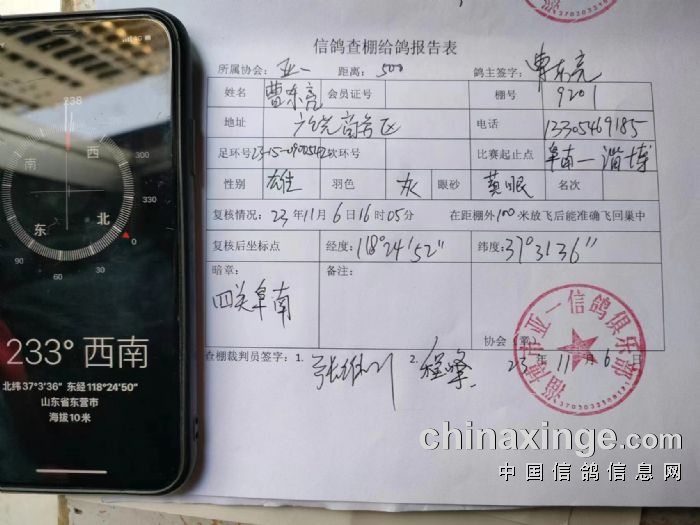 238
南
西
300
330
东
北
0
90
60
30
233° 西南
北纬37°3'36" 东经118°24'50"
山东省东营市
海拔10米
信鸽查棚给鸽报告表
所属协会: 亚一 距离: 500 鸽主签字: 曹东亮
姓名 曹东亮 会员证号 棚号 9201
地址 电话 13305469185
足环号 软环号 比赛起止点 阜南一淄博
性别 雄 羽色 灰 眼砂 黄眼 名次
复核情况: 23年11月6日16时05分 在距棚外100米放飞后能准确飞回巢中
复核后坐标点 经度: 118°24'52" 纬度: 37°3'36"
暗章: 备注:
四关阜南
协会(章)
查棚裁判员签字: 1. 2. 程峰
23年11月6日
淄博市亚一信鸽俱乐部
chinaxinge.com
中国信鸽信息网